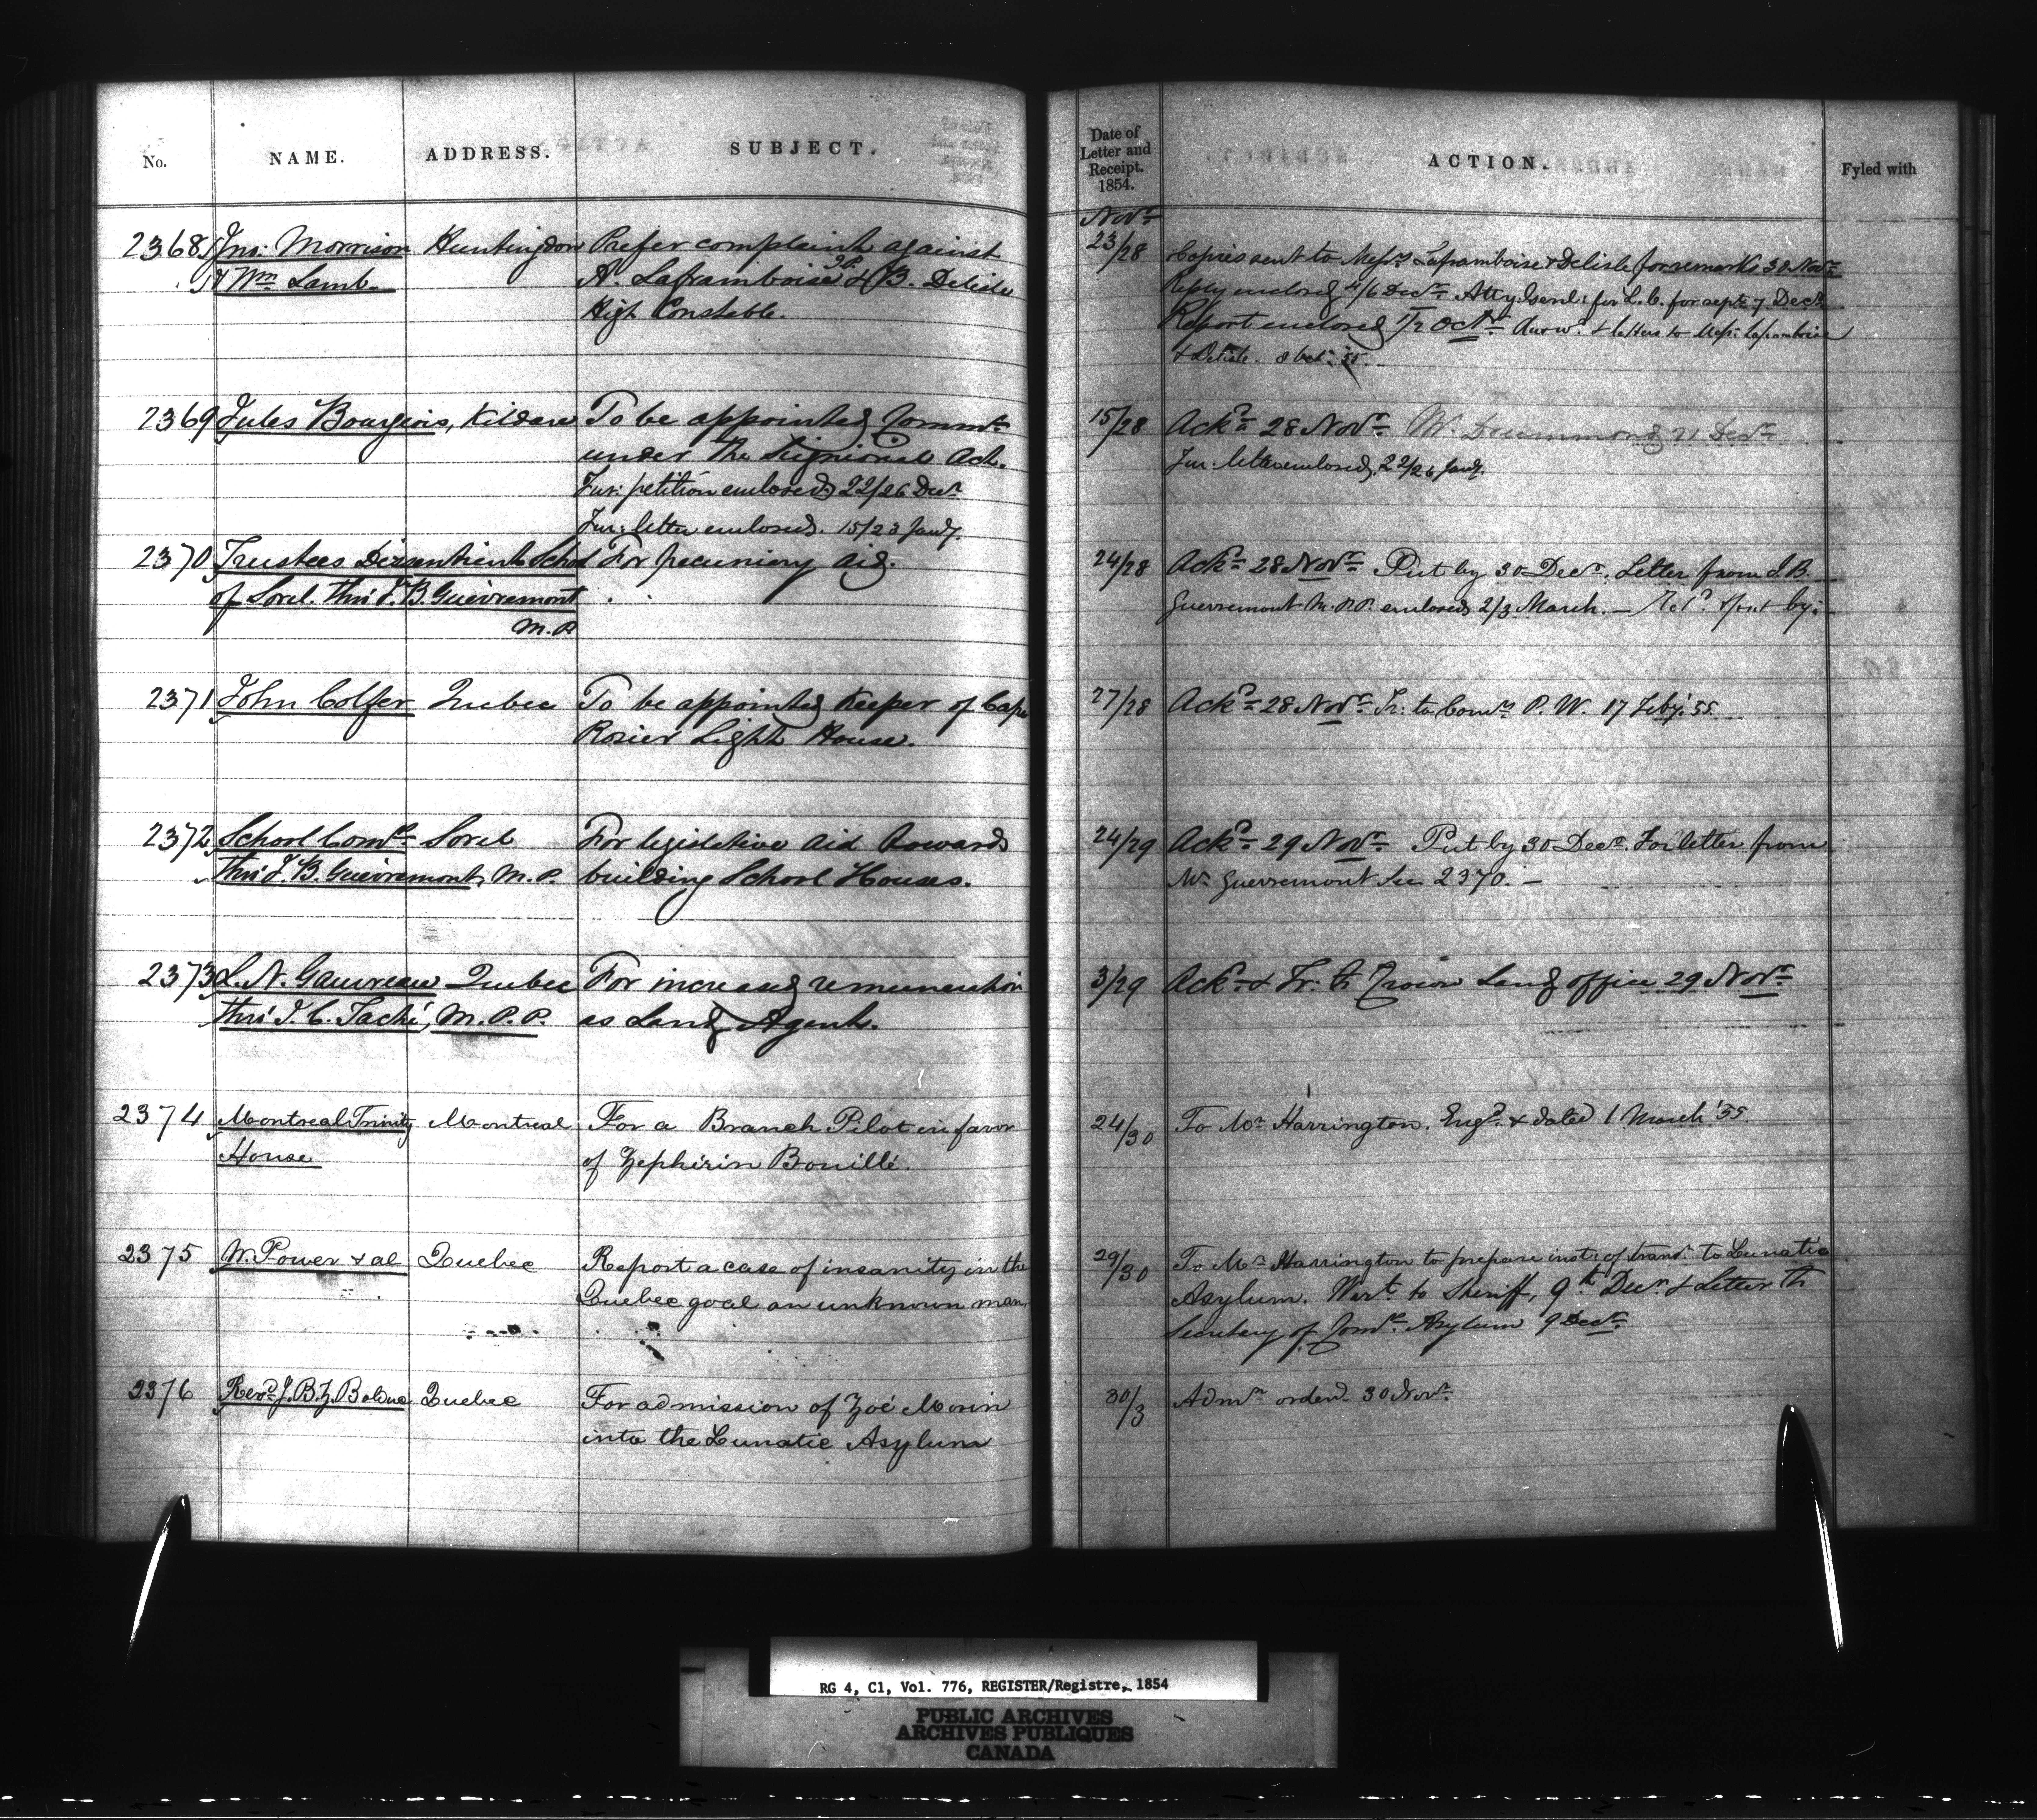 No. NAME. ADDRESS. SUBJECT.
2368 Jno: Morrison Huntingdon Prefer complaint against
& Wm Lamb A. Laframboise J.P. & B. Delisle
High Constable.
2369 Jules Bourgeois, Kildare To be appointed Commr
under the Seigniorial Act.
Fur: petition enclosed 22/26 Decr
Fur: letter enclosed. 15/23 Jany.
2370 Trustees Dissentient School For pecuniary aid.
of Sorel. Thro' J. B. Guevremont
M.P.
2371 John Colfer Quebec To be appointed Keeper of Cape
Rosier Light House.
2372 School Comrs Sorel For legislative aid towards
Thro' J. B. Guevremont, M.P. building School Houses.
2373 L. N. Gauvreau Quebec For increased remuneration
thro' J. C. Taché, M.P.P. as Land Agent.
2374 Montreal Trinity Montreal For a Branch Pilot in favor
House of Zephirin Bouillé.
2375 W. Power & al Quebec Report a case of insanity in the
Quebec goal an unknown man.
2376 Revd J. B. Z. Bolduc Quebec For admission of Zoé Morin
into the Lunatic Asylum
Date of
Letter and
Receipt.
1854. ACTION. Fyled with
Novr
23/28 Copies sent to Messrs Laframboise & Delisle for remarks 30 Novr
Reply enclosed 4/6 Decr Atty: Genl: for L.C. for rept 7 Decr
Report enclosed 1/2 Octr Answd & letters to Messrs Laframboise
& Delisle. 8 Oct: 55.
15/28 Ackd 28 Novr Mr Drummond 21 Decr
Fur: letter enclosed 22/26 Jany.
24/28 Ackd 28 Novr Put by 30 Decr. Letter from J. B.
Guevremont M.P.P. enclosed 2/3 March. — & put by.
27/28 Ackd 28 Novr Tr: to Comrs P. W. 17 Feby. '55
24/29 Ackd 29 Novr Put by 30 Decr. For letter from
Mr Guevremont See 2370. —
3/29 Ackd & Tr: to Crown Land office 29 Novr
24/30 To Mr Harrington. Engd & dated 1 March '55.
29/30 To Mr Harrington to prepare inst: of transr to Lunatic
Asylum. Wart to Sheriff, 9th Decr & Letter to
Secretary of Comrs Asylum 9 Decr
30/3 Admn orderd 30 Novr
RG 4, C1, Vol. 776, REGISTER/Registre, 1854
PUBLIC ARCHIVES
ARCHIVES PUBLIQUES
CANADA